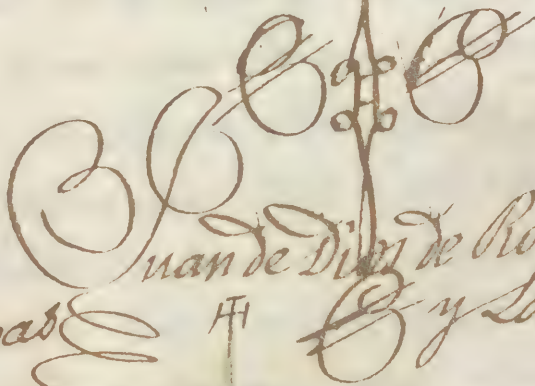 Juan de Dios de Ro
y Lo